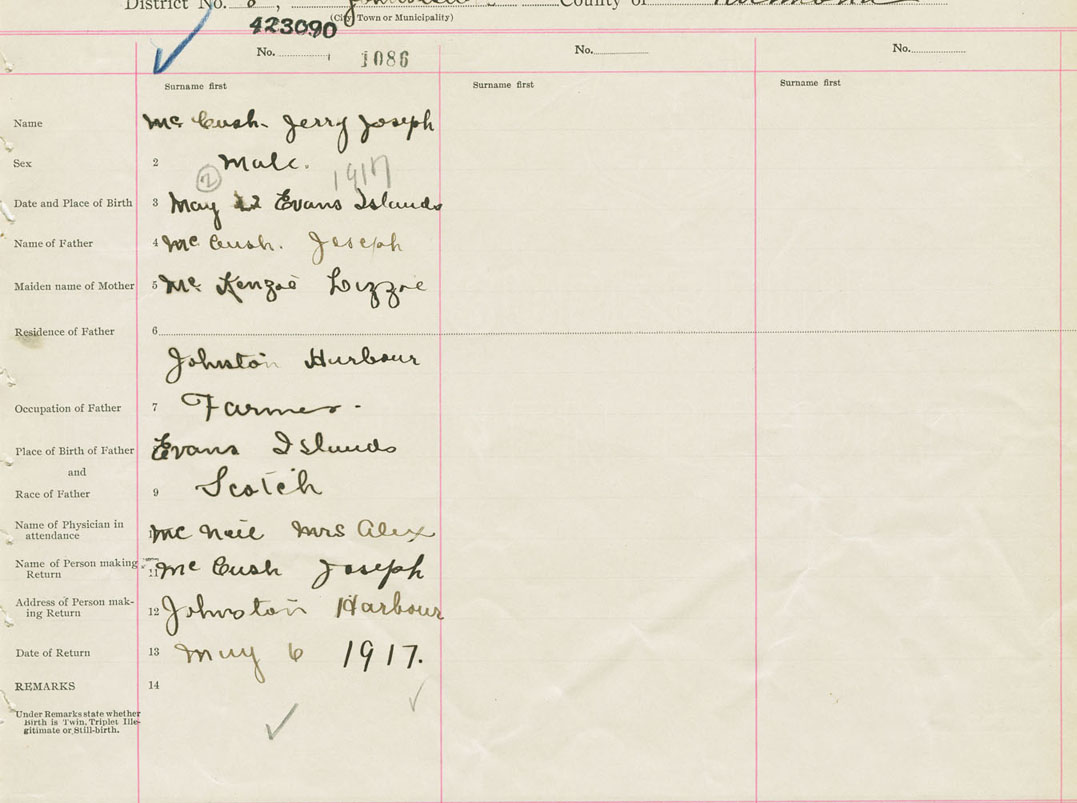 District No. 8, County of Richmond
(City Town or Municipality)
423090
No. 1086 No. No.
Surname first Surname first Surname first
Name Mc Cush. Jerry Joseph
Sex 2 Male.
② 1917
Date and Place of Birth 3 May 2 Evans Islands
Name of Father 4 Mc Cush. Joseph
Maiden name of Mother 5 Mc Kenzie Lizzie
Residence of Father 6
Johnston Harbour
Occupation of Father 7 Farmer.
Place of Birth of Father Evans Islands
and
Race of Father 9 Scotch
Name of Physician in
attendance Mc Neil Mrs Alex
Name of Person making
Return 11 Mc Cush Joseph
Address of Person mak-
ing Return 12 Johnston Harbour
Date of Return 13 May 6 1917.
REMARKS 14
Under Remarks state whether
Birth is Twin, Triplet Ille-
gitimate or Still-birth.